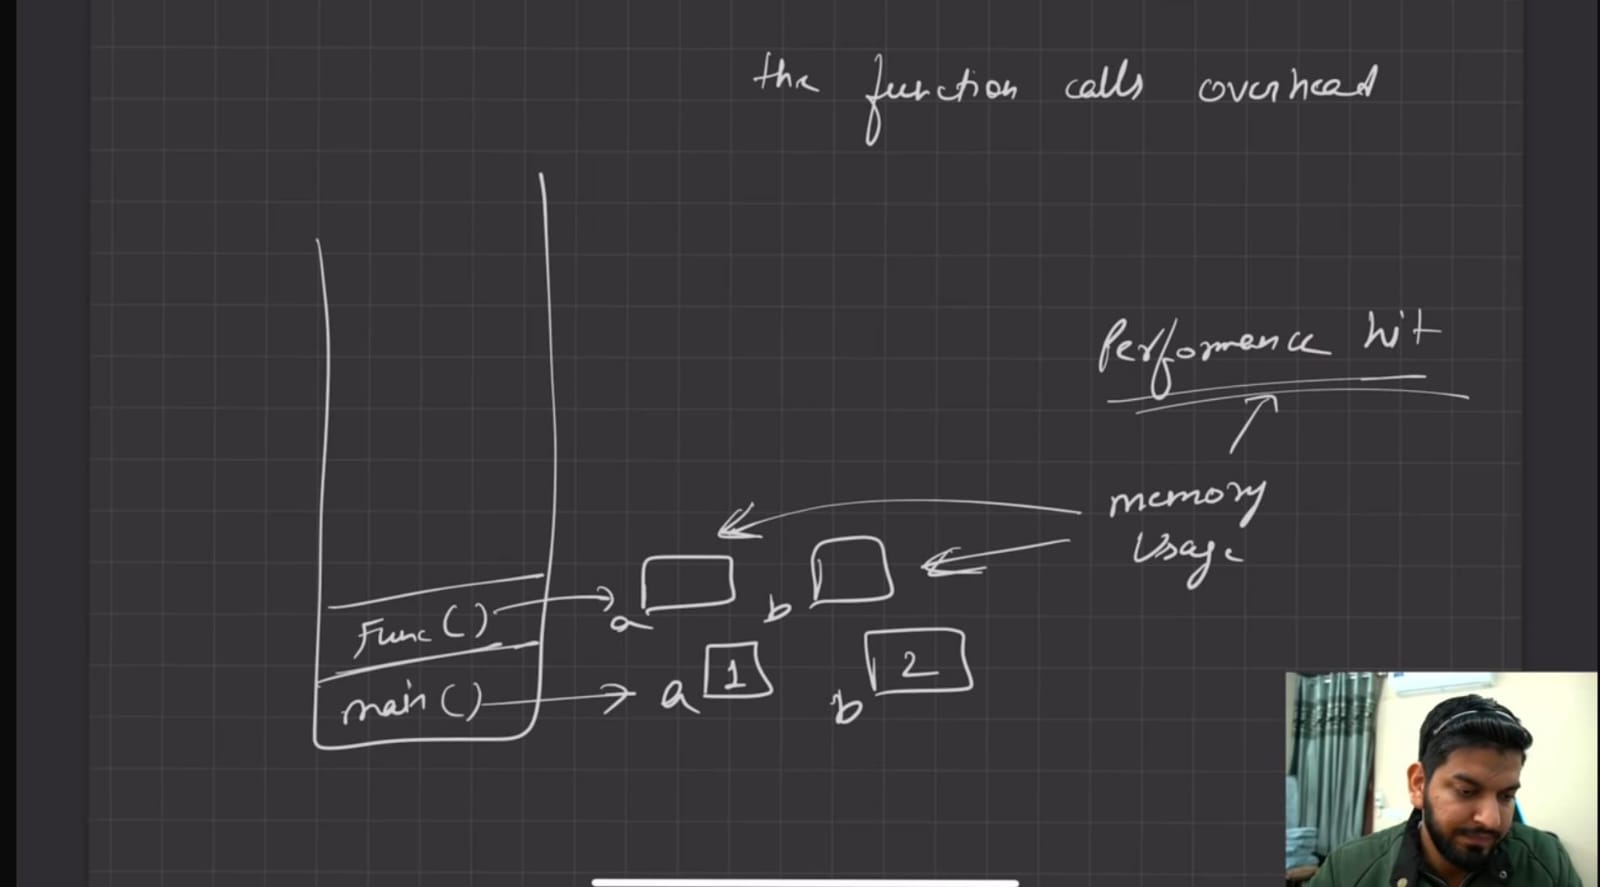 the function calls overhead
Performance hit
memory
Usage
Func ()
a
b
main ()
a 1
b 2